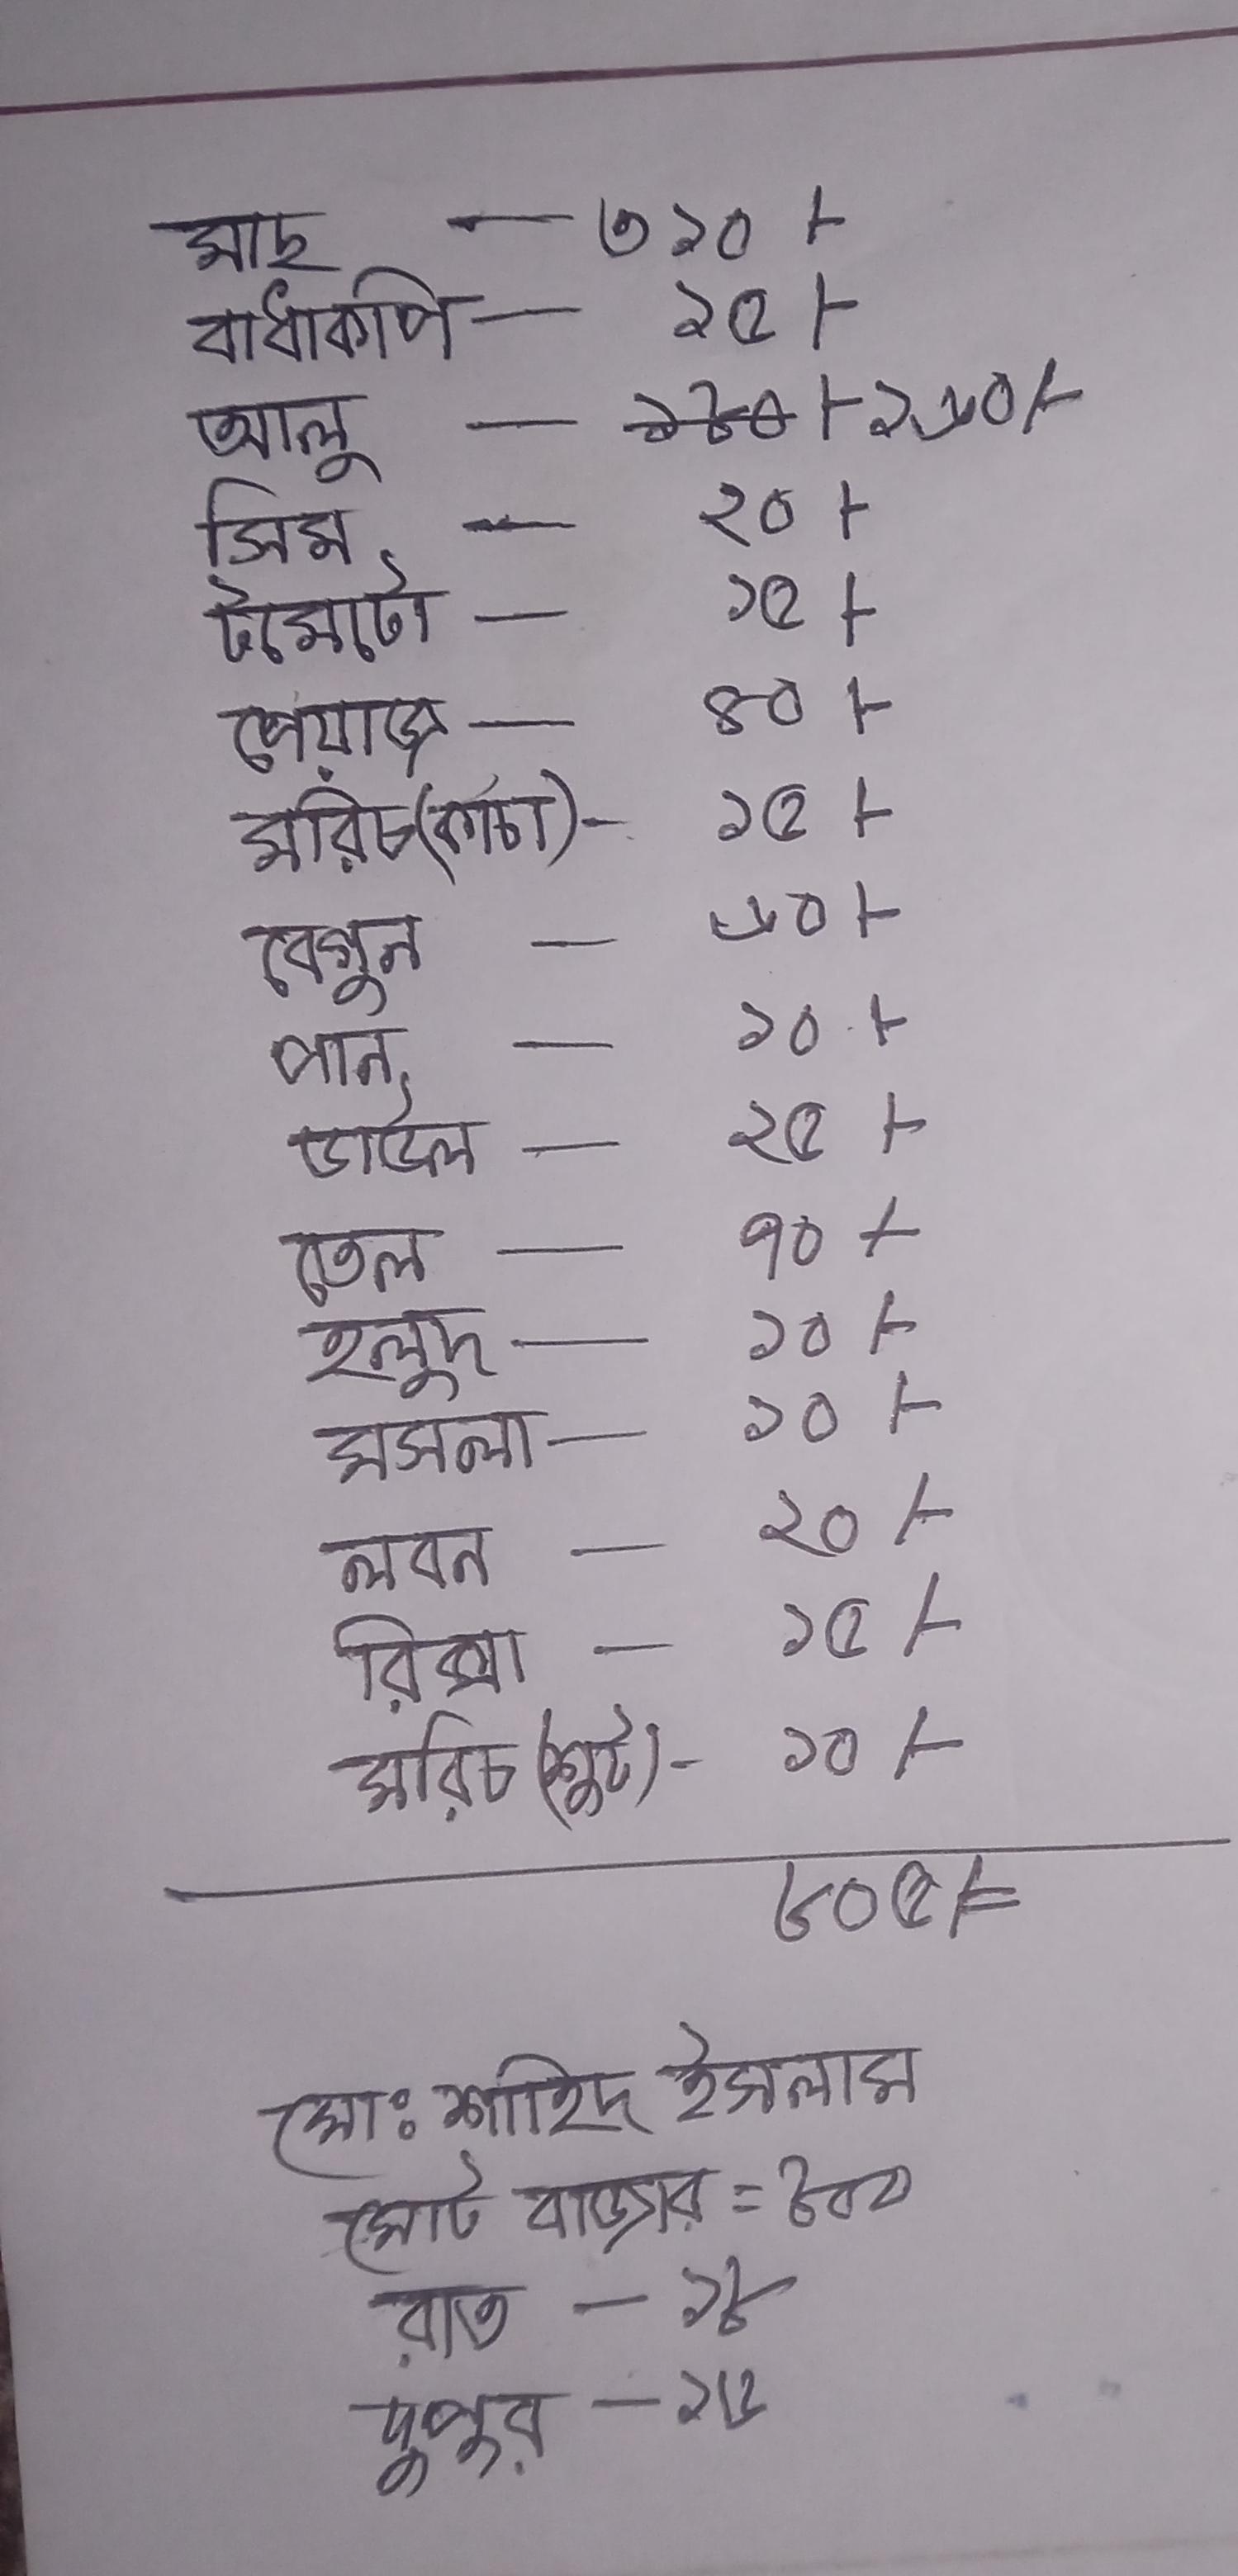 মাছ — ৩১০ /-
বাধাকপি — ১৫ /-
আলু — /- ১৬০/-
সিম — ২০ /-
টমেটো — ১৫ /-
পেয়াজ — ৪০ /-
মরিচ(কাঁচা) - ১৫ /-
বেগুন — ৬০ /-
পান — ১০ /-
ডাউল — ২৫ /-
তেল — ৭০ /-
হলুদ — ১০ /-
মসলা — ১০ /-
লবন — ২০ /-
রিক্সা — ১৫ /-
মরিচ (শুট) - ১০ /-
৮০৫/=
মোঃ শাহিদ ইসলাম
মোট বাজার =
রাত —
দুপুর —